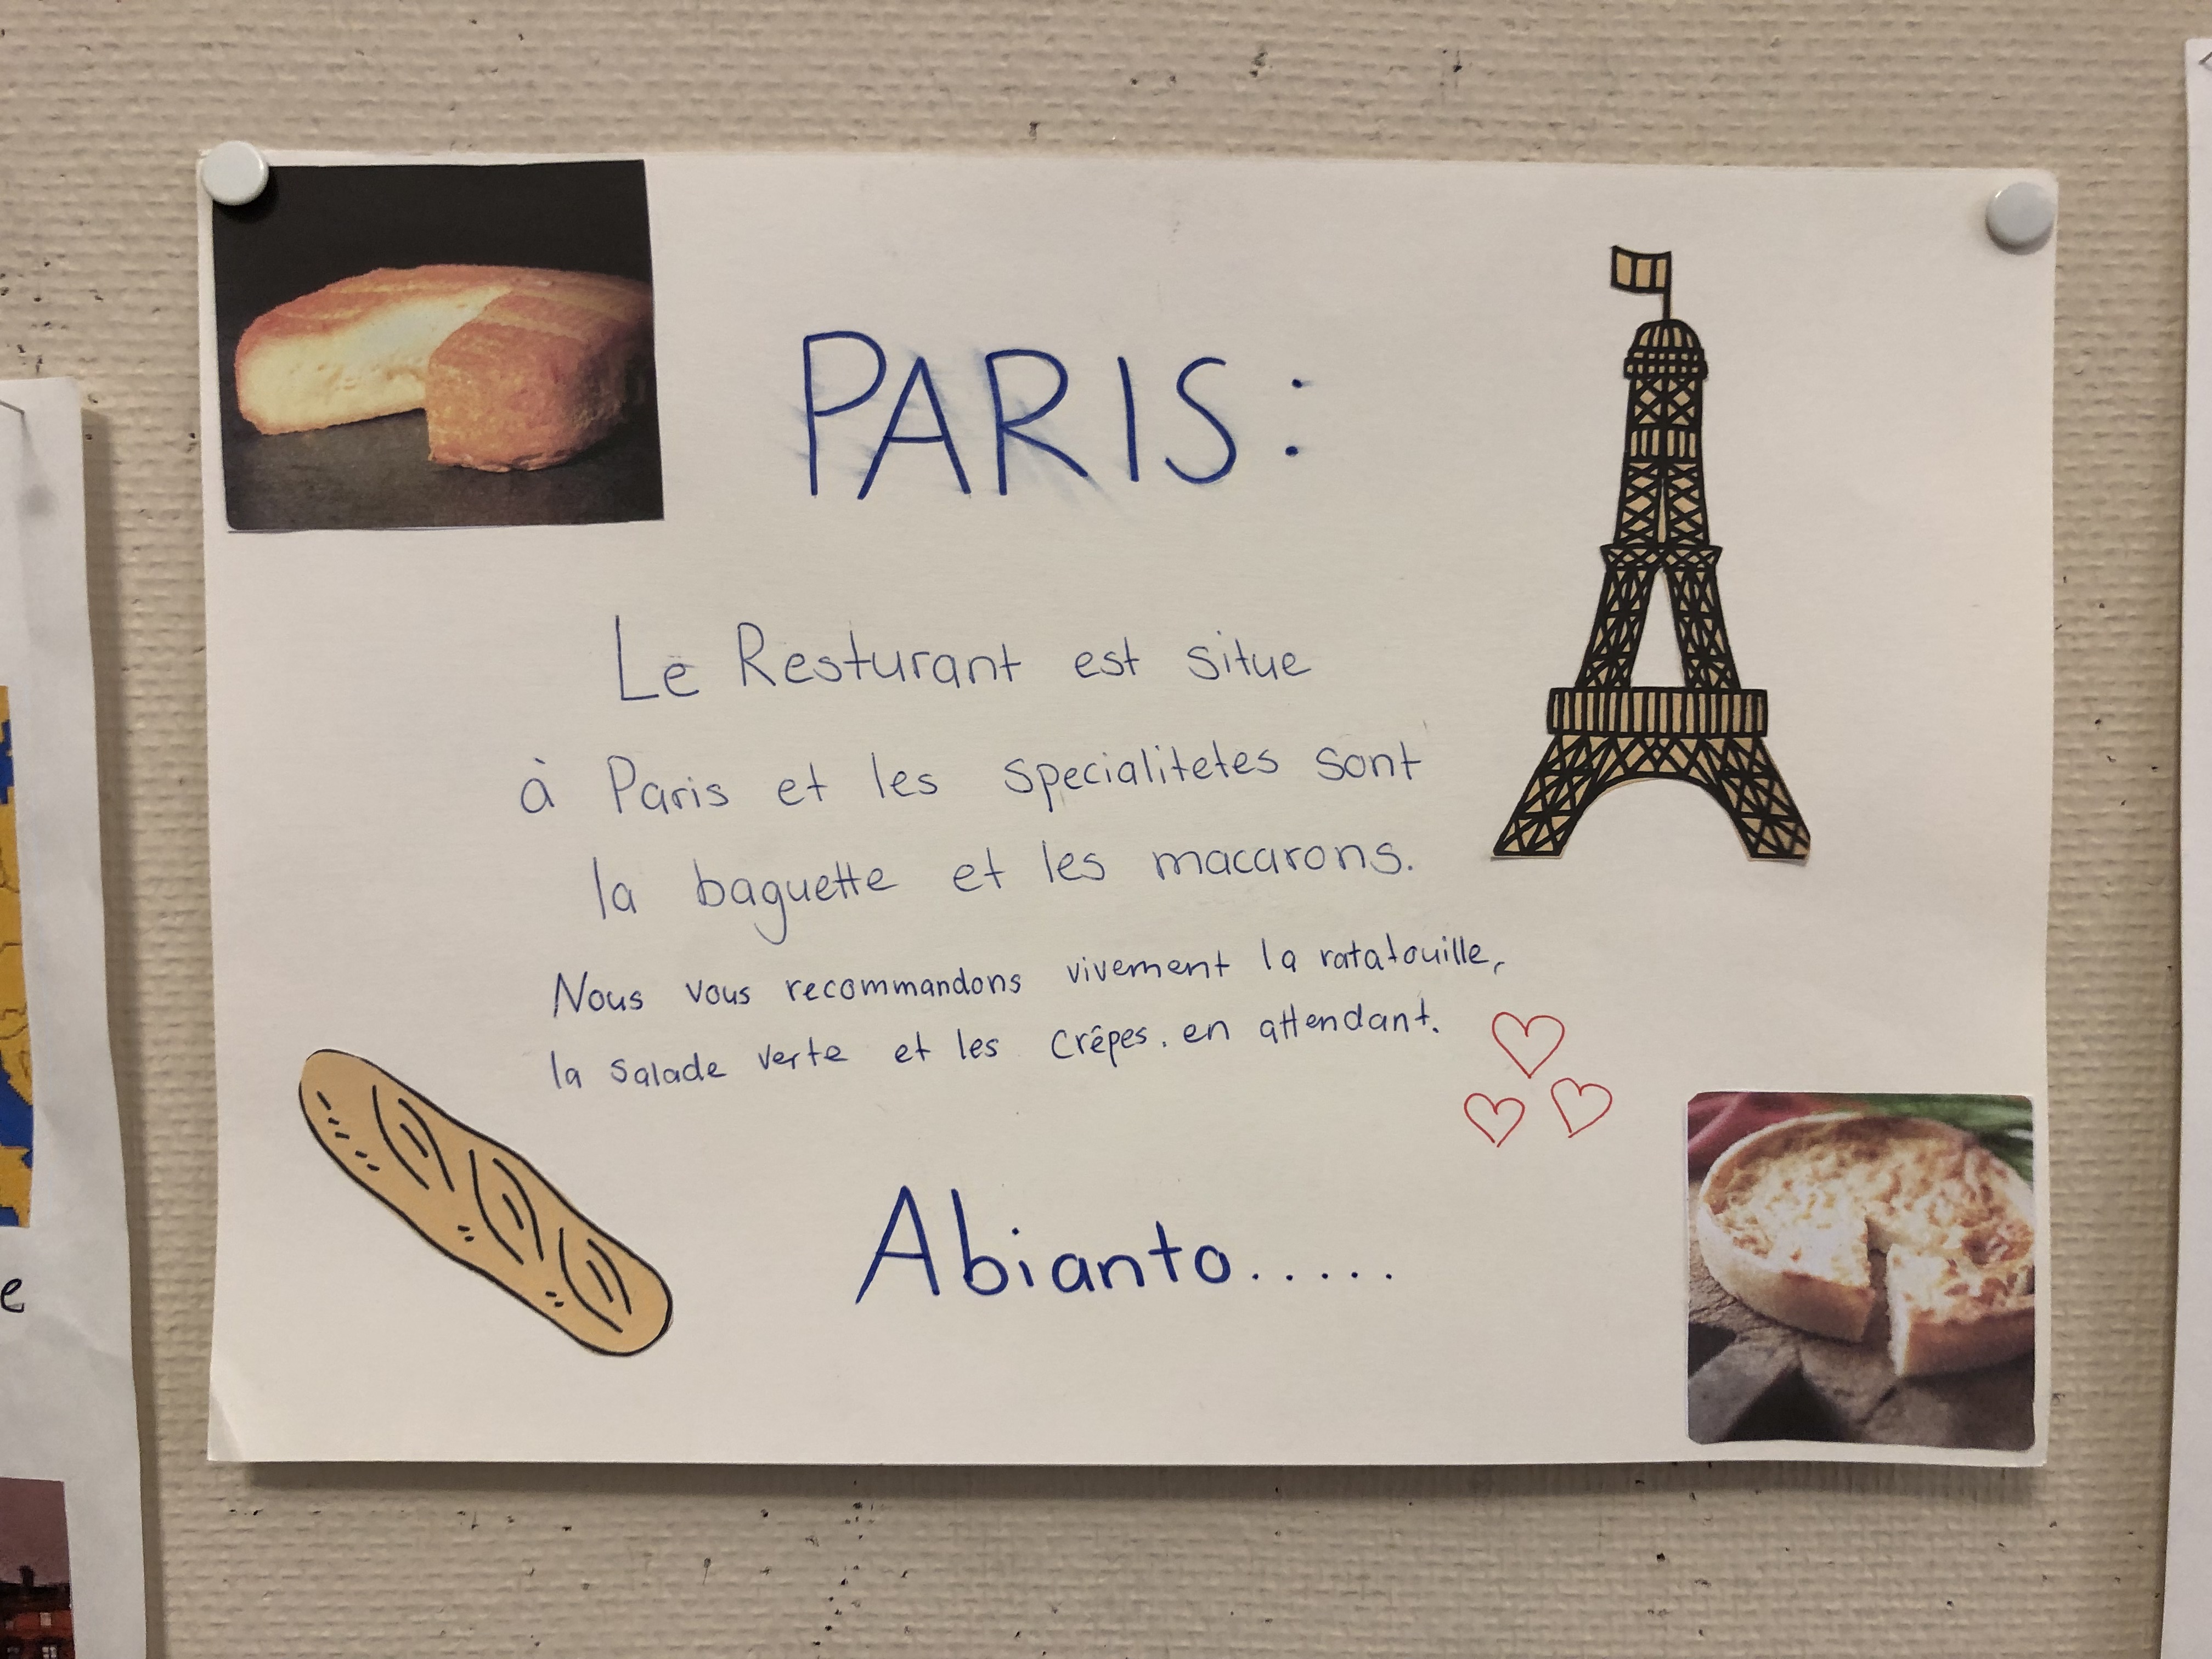 PARIS:
Le Resturant est situe
à Paris et les specialitetes sont
la baguette et les macarons.
Nous vous recommandons vivement la ratatouille,
la salade verte et les crêpes. en attendant.
Abianto.....
e